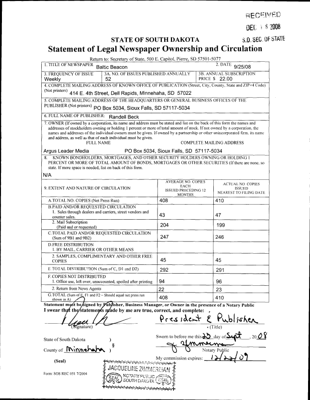 RECEIVED
DEC 15 2008
S.D. SEC. OF STATE
STATE OF SOUTH DAKOTA
Statement of Legal Newspaper Ownership and Circulation
Return to: Secretary of State, 500 E. Capitol, Pierre, SD 57501-5077
1. TITLE OF NEWSPAPER Baltic Beacon 2. DATE 9/25/08
3. FREQUENCY OF ISSUE Weekly
3A. NO. OF ISSUES PUBLISHED ANNUALLY 52
3B. ANNUAL SUBSCRIPTION PRICE $ 22.00
4. COMPLETE MAILING ADDRESS OF KNOWN OFFICE OF PUBLICATION (Street, City, County, State and ZIP+4 Code)
(Not printers) 414 E. 4th Street, Dell Rapids, Minnehaha, SD 57022
5. COMPLETE MAILING ADDRESS OF THE HEADQUARTERS OR GENERAL BUSINESS OFFICES OF THE
PUBLISHER (Not printers) PO Box 5034, Sioux Falls, SD 57117-5034
6. FULL NAME OF PUBLISHER: Randell Beck
7. OWNER (If owned by a corporation, its name and address must be stated and
FULL NAME COMPLETE MAILING ADDRESS
Argus Leader Media PO Box 5034, Sioux Falls, SD 57117-5034
8. KNOWN BONDHOLDERS, MORTGAGES, AND OTHER SECURITY HOLDERS OWNING OR HOLDING 1
PERCENT OR MORE OF TOTAL AMOUNT OF BONDS, MORTGAGES OR OTHER SECURITIES
N/A
9. EXTENT AND NATURE OF CIRCULATION
AVERAGE NO. COPIES EACH ISSUE PRECEDING 12 MONTHS
ACTUAL NO. COPIES ISSUED NEAREST TO FILING DATE
A. TOTAL NO. COPIES (Net Press Run) 408 410
B. PAID AND/OR REQUESTED CIRCULATION
1. Sales through dealers and carriers, street vendors and counter sales. 43 47
2. Mail Subscription (Paid and or requested) 204 199
C. TOTAL PAID AND/OR REQUESTED CIRCULATION (Sum of 9B1 and 9B2) 247 246
D. FREE DISTRIBUTION
1. BY MAIL, CARRIER OR OTHER MEANS
2. SAMPLES, COMPLIMENTARY AND OTHER FREE COPIES 45 45
E. TOTAL DISTRIBUTION (Sum of C, D1 and D2) 292 291
F. COPIES NOT DISTRIBUTED
1. Office use, left over, unaccounted, spoiled after printing 94 96
2. Return from News Agents 22 23
G. TOTAL (Sum of E, F1 and F2 - Should equal net press run shown in A) 408 410
Statement must be signed by Publisher, Business Manager, or Owner in the presence of a Notary Public
I swear that the statements made by me are true, correct, and complete:
(Signature)
President & Publisher
(Title)
State of South Dakota )
County of Minnehaha )
Sworn to before me this day of Sept 2008
Notary Public
My commission expires:
(Seal)
JACQUELINE ZIMMERMAN
NOTARY PUBLIC
SOUTH DAKOTA
SEAL
Form: SOS REC 051 7/2004